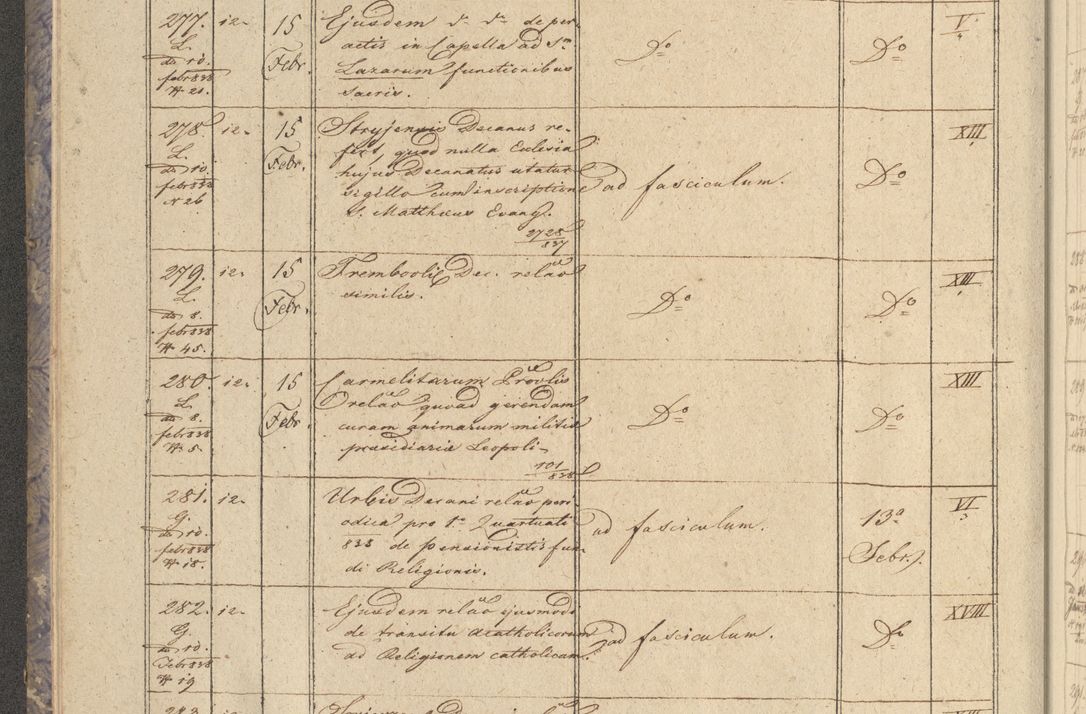 277. 12. 15 Ejusdem d° d° de per-
L. actis in Capella ad S.
dto 10. Febr. Lazarum functionibus D° D° V.
febr 838 sacris.
N 21.
278. 12. 15 Stryjensis Decanus re-
L. Febr. fert, quod nulla Ecclesia XIII
dto 10. hujus Decanatus utatur
febr 838 sigillo cum inscriptione ad fasciculum. D°
N 26 S. Mattheus Evang.
2728/837
279. 12. 15 Trembowli Dec. relao XIII
L. similis.
dto 8. Febr. D° D°
febr 838
N 45.
280 12. 15 Carmelitarum Provlis XIII
L. relao quoad gerendam
dto 8. Febr. curam animarum militis D° D°
febr 838 praesidiarii Leopoli
N 5. 101/838
281. 12. Urbis Decani relao peri VI
G. odica pro 1° Quartuali 13a
dto 10. 838 de pensionistis fun- ad fasciculum. Febr.
febr 838 di Religionis.
N 18.
282. 12. Ejusdem relao ejusmodi XVIII
G. de transitu acatholicorum
dto 10. ad Religionem catholicam. ad fasciculum. D°
Febr 838
N 19
283. 12.